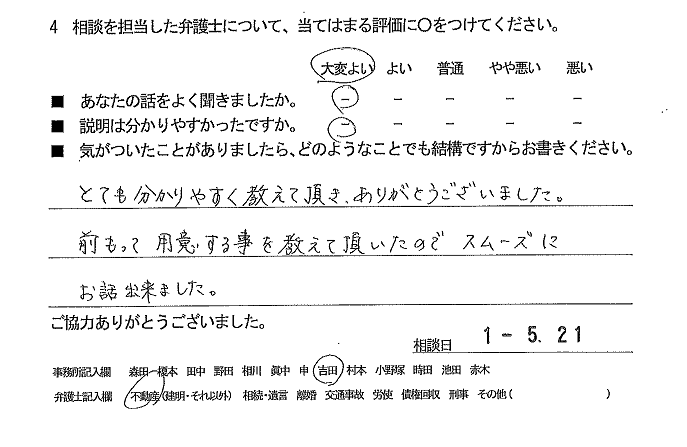 4 相談を担当した弁護士について、当てはまる評価に〇をつけてください。
大変よい よい 普通 やや悪い 悪い
■ あなたの話をよく聞きましたか。 － － － － －
■ 説明は分かりやすかったですか。 － － － － －
■ 気がついたことがありましたら、どのようなことでも結構ですからお書きください。
とても分かりやすく教えて頂き、ありがとうございました。
前もって用意する事を教えて頂いたのでスムーズに
お話出来ました。
ご協力ありがとうございました。
相談日 1-5.21
事務局記入欄 森田 榎本 田中 野田 相川 眞中 申 吉田 村本 小野塚 時田 池田 赤木
弁護士記入欄 不動産(建明・それ以外) 相続・遺言 離婚 交通事故 労使 債権回収 刑事 その他( )